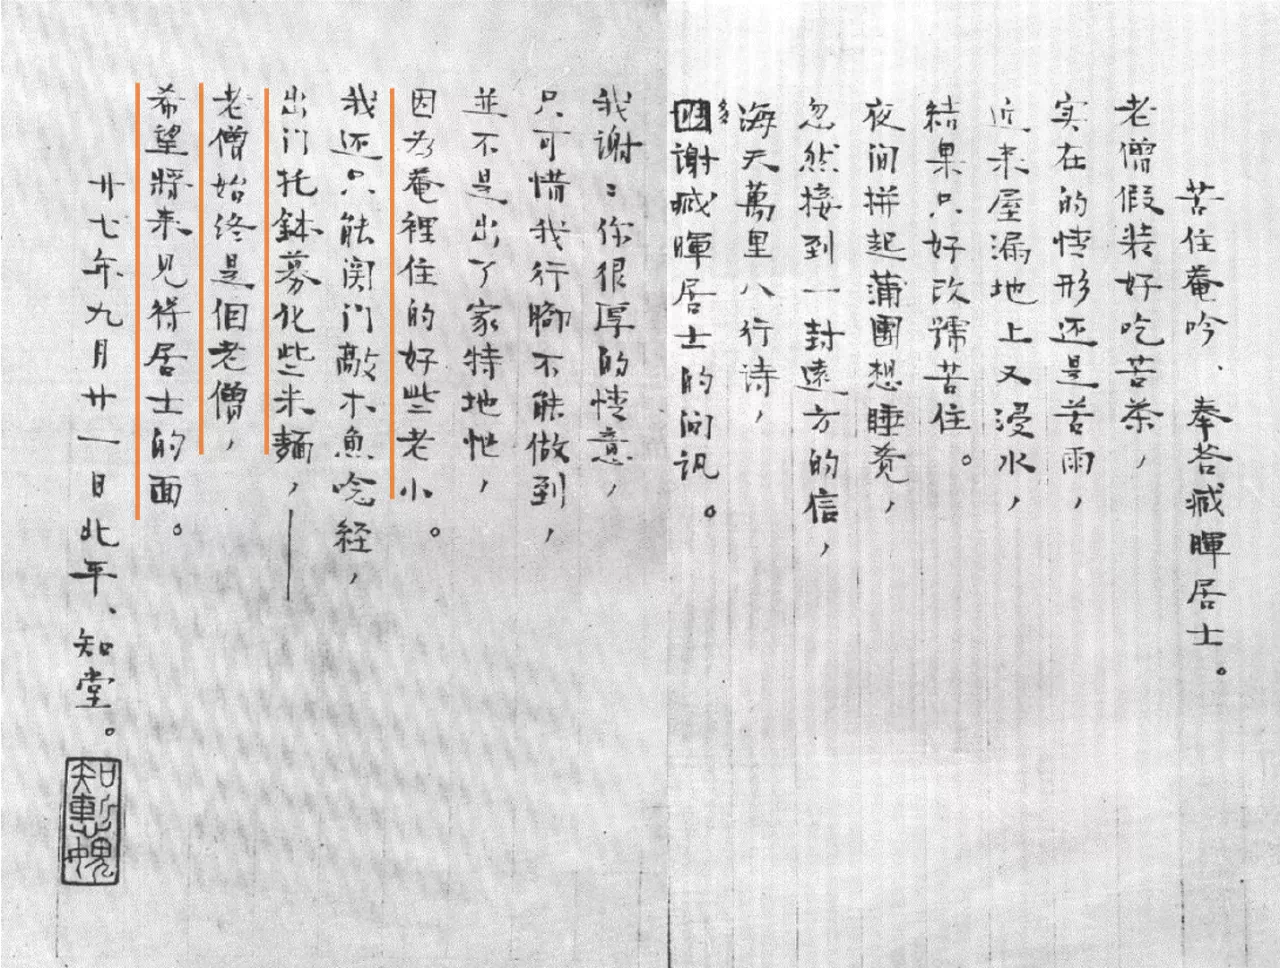 苦住菴吟、奉答臧暉居士。
老僧假装好吃苦茶，
实在的情形还是苦雨，
近来屋漏地上又浸水，
結果只好改號苦住。
夜间拼起蒲團想睡觉，
忽然接到一封遠方的信，
海天萬里八行诗，
多謝臧暉居士的问讯。
我謝謝你很厚的情意，
只可惜我行脚不能做到，
並不是出了家特地忙，
因为菴裡住的好些老小。
我还只能関门敲木魚唸経，
出门托鉢募化些米麵，——
老僧始终是個老僧，
希望將来见得居士的面。
廿七年九月廿一日北平、知堂。
知慙愧